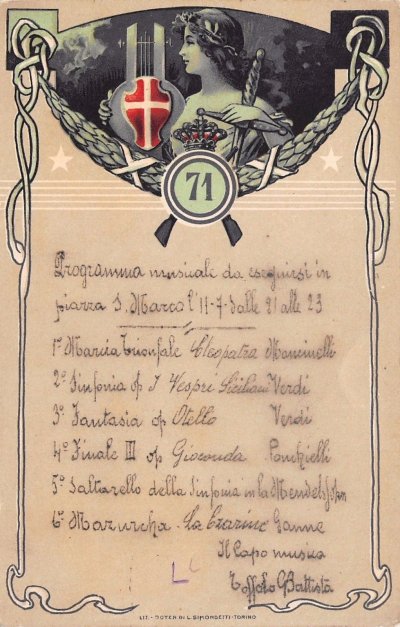 71
Programma musicale da eseguirsi in
piazza S. Marco l'11-7- dalle 21 alle 23
1º Marcia trionfale Cleopatra Mancinelli
2º Sinfonia op I Vespri Siciliani Verdi
3º Fantasia op Otello Verdi
4º Finale III op Gioconda Ponchielli
5º Saltarello della Sinfonia in la Mendelsshon
6º Mazurcha - La Czarine Ganne
Il Capo musica
Toffolo Battista
LIT.-DOYEN DI L. SIMONDETTI-TORINO